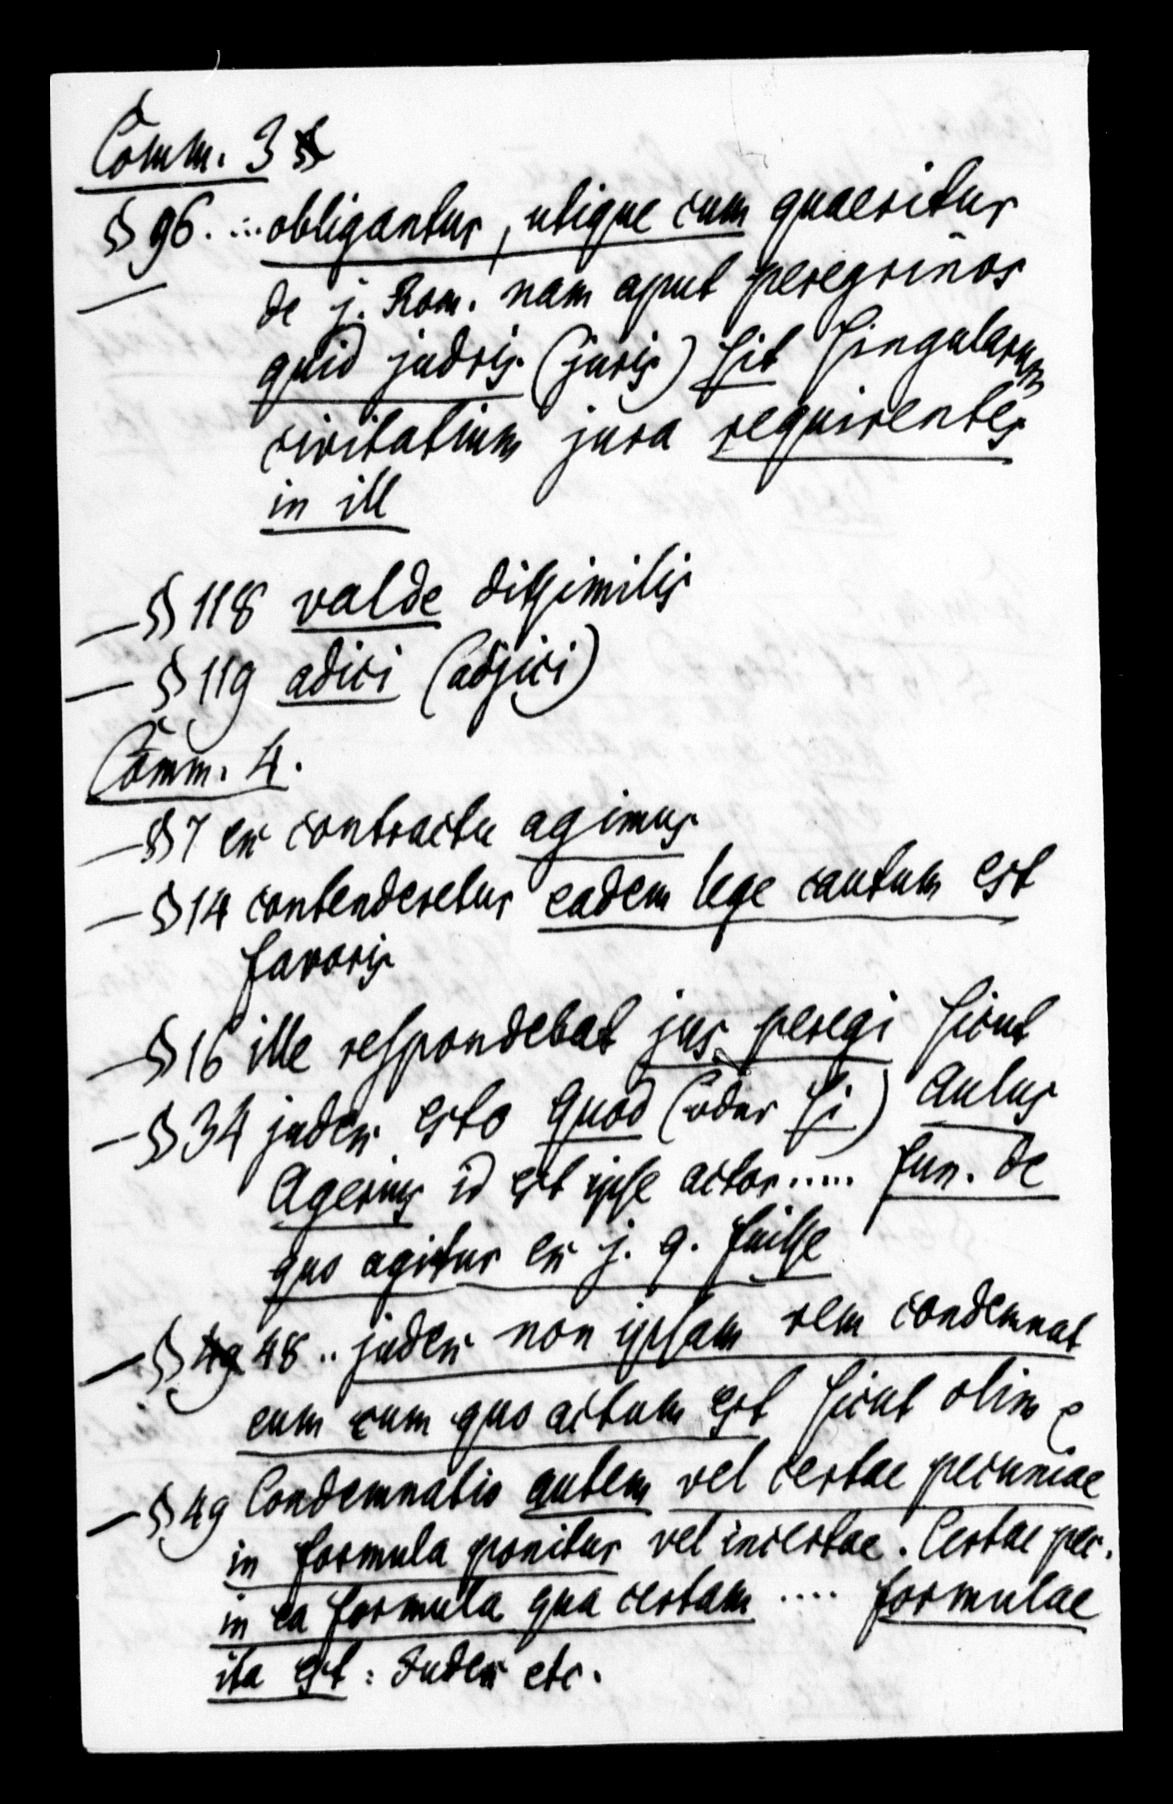 Comm. 3
§ 96. ... obligantur, utique cum quaeritur
de j. Rom. nam aput peregrinos
quid judris (juris) sit singularum
civitatium jura requirentes
in ill
— § 118 valde dissimilis
— § 119 adici (adjici)
Comm. 4.
— § 7 ex contractu agimus
— § 14 contenderetur eadem lege cautum est
favoris
— § 16 ille respondebat jus peregi sicut
— § 34 judex esto Quod (oder si) Aulus
Agerius id est ipse actor..... fun. de
quo agitur ex j. q. fuisse
— § 48 .. judex non ipsam rem condemnat
eum cum quo actum est sicut olim e
— § 49 Condemnatio autem vel certae pecuniae
in formula ponitur vel incertae. Certae pec.
in ea formula qua certam .... formulae
ita est : Judex etc.